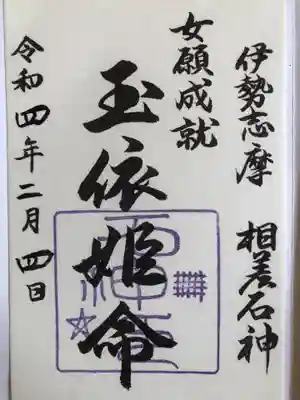 伊勢志摩 相差石神
女願成就
玉依姫命
令和四年二月四日